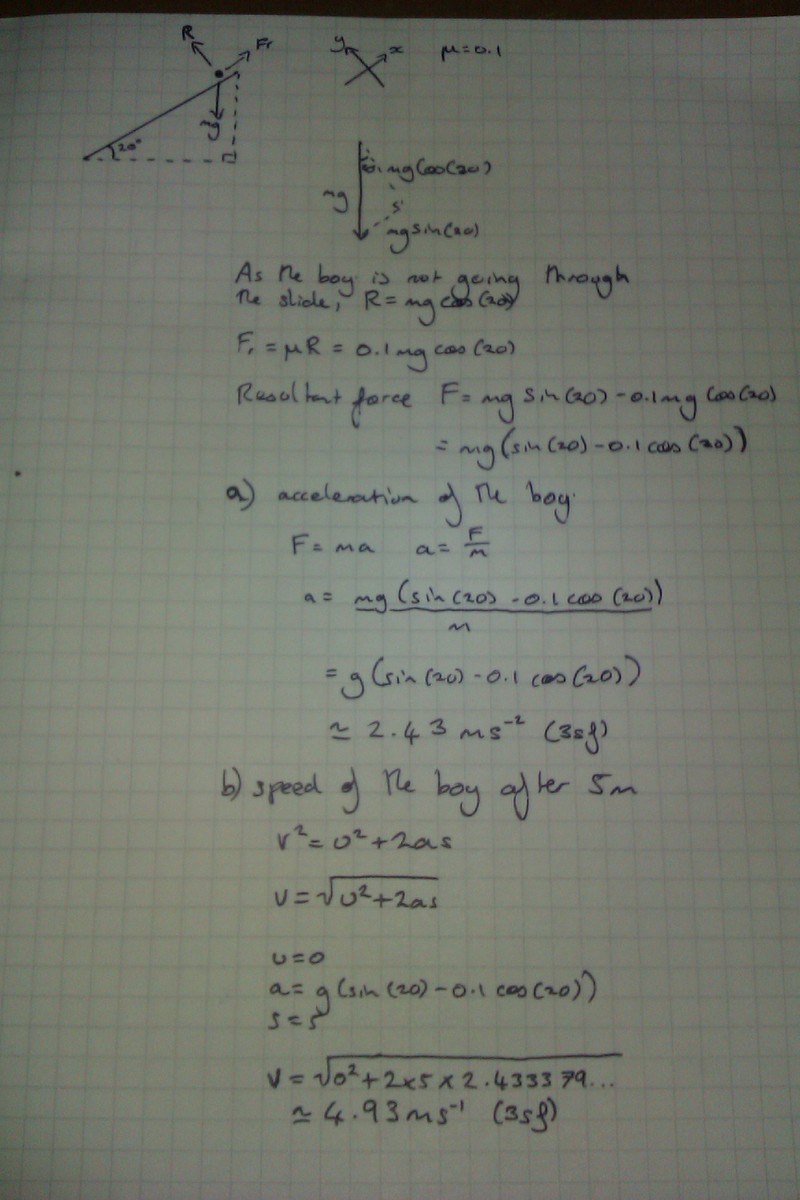 R
Fr
y x μ=0.1
mg
20°
mg cos(20)
mg
mg sin(20)
As the boy is not going through
the slide, R = mg cos(20)
Fr = μR = 0.1mg cos(20)
Resultant force F = mg sin(20) - 0.1mg cos(20)
= mg(sin(20) - 0.1 cos(20))
a) acceleration of the boy.
F = ma a = F/m
a = mg(sin(20) - 0.1 cos(20))
m
= g(sin(20) - 0.1 cos(20))
≃ 2.43 ms⁻² (3sf)
b) speed of the boy after 5m
v² = u² + 2as
v = √u²+2as
u=0
a = g(sin(20) - 0.1 cos(20))
s=5
v = √0²+2×5×2.433379...
≃ 4.93 ms⁻¹ (3sf)